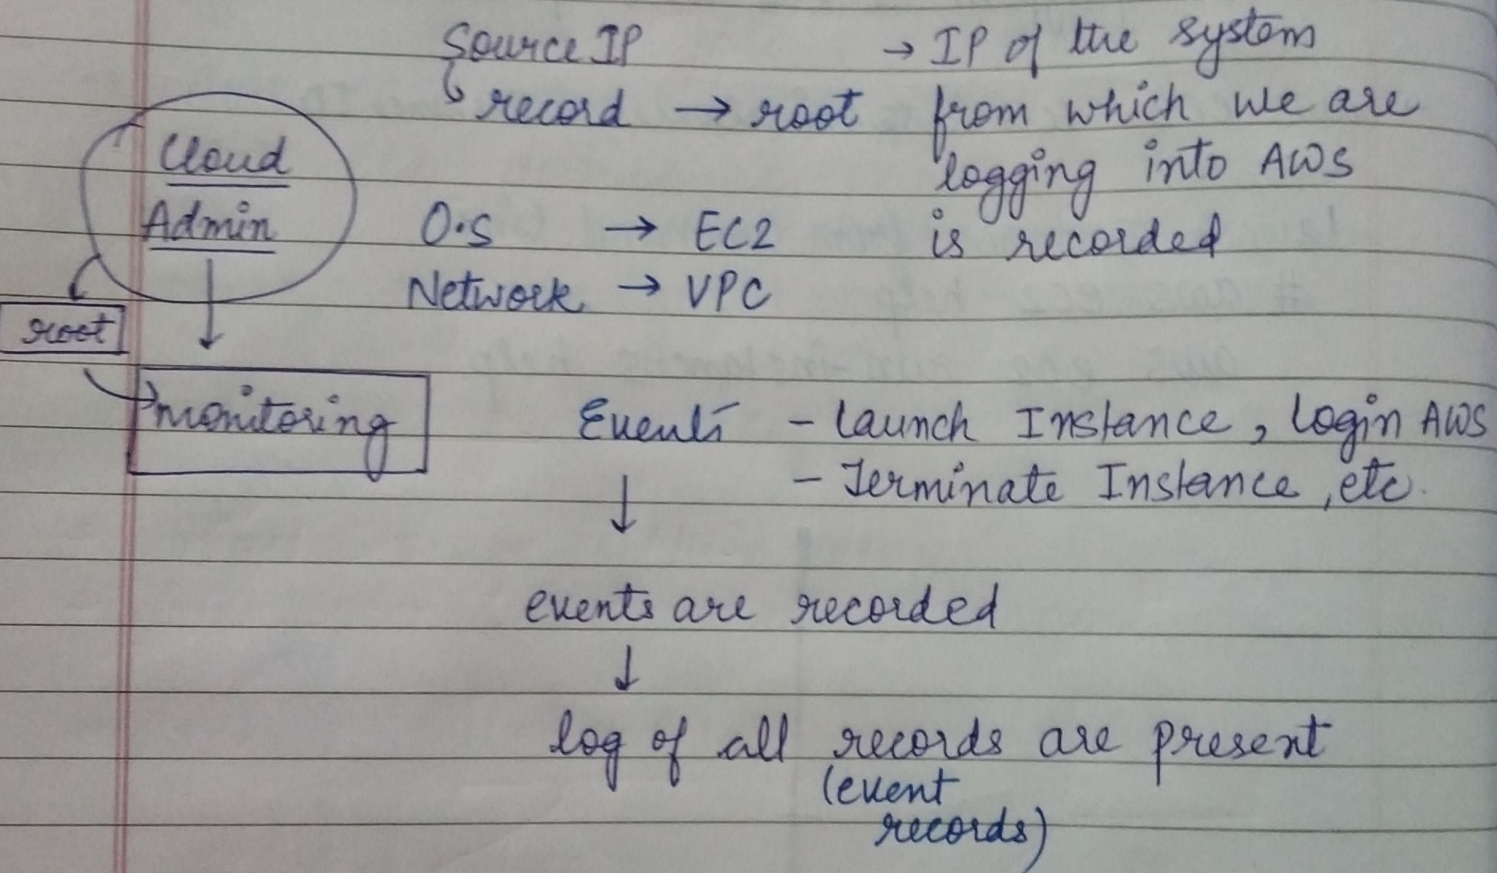 Source IP → IP of the system
↳ record → root from which we are
Cloud
logging into AWS
Admin O.S → EC2 is recorded
Network → VPC
root
monitoring Events - Launch Instance, Login AWS
- Terminate Instance, etc.
↓
events are recorded
↓
log of all records are present
(event
records)